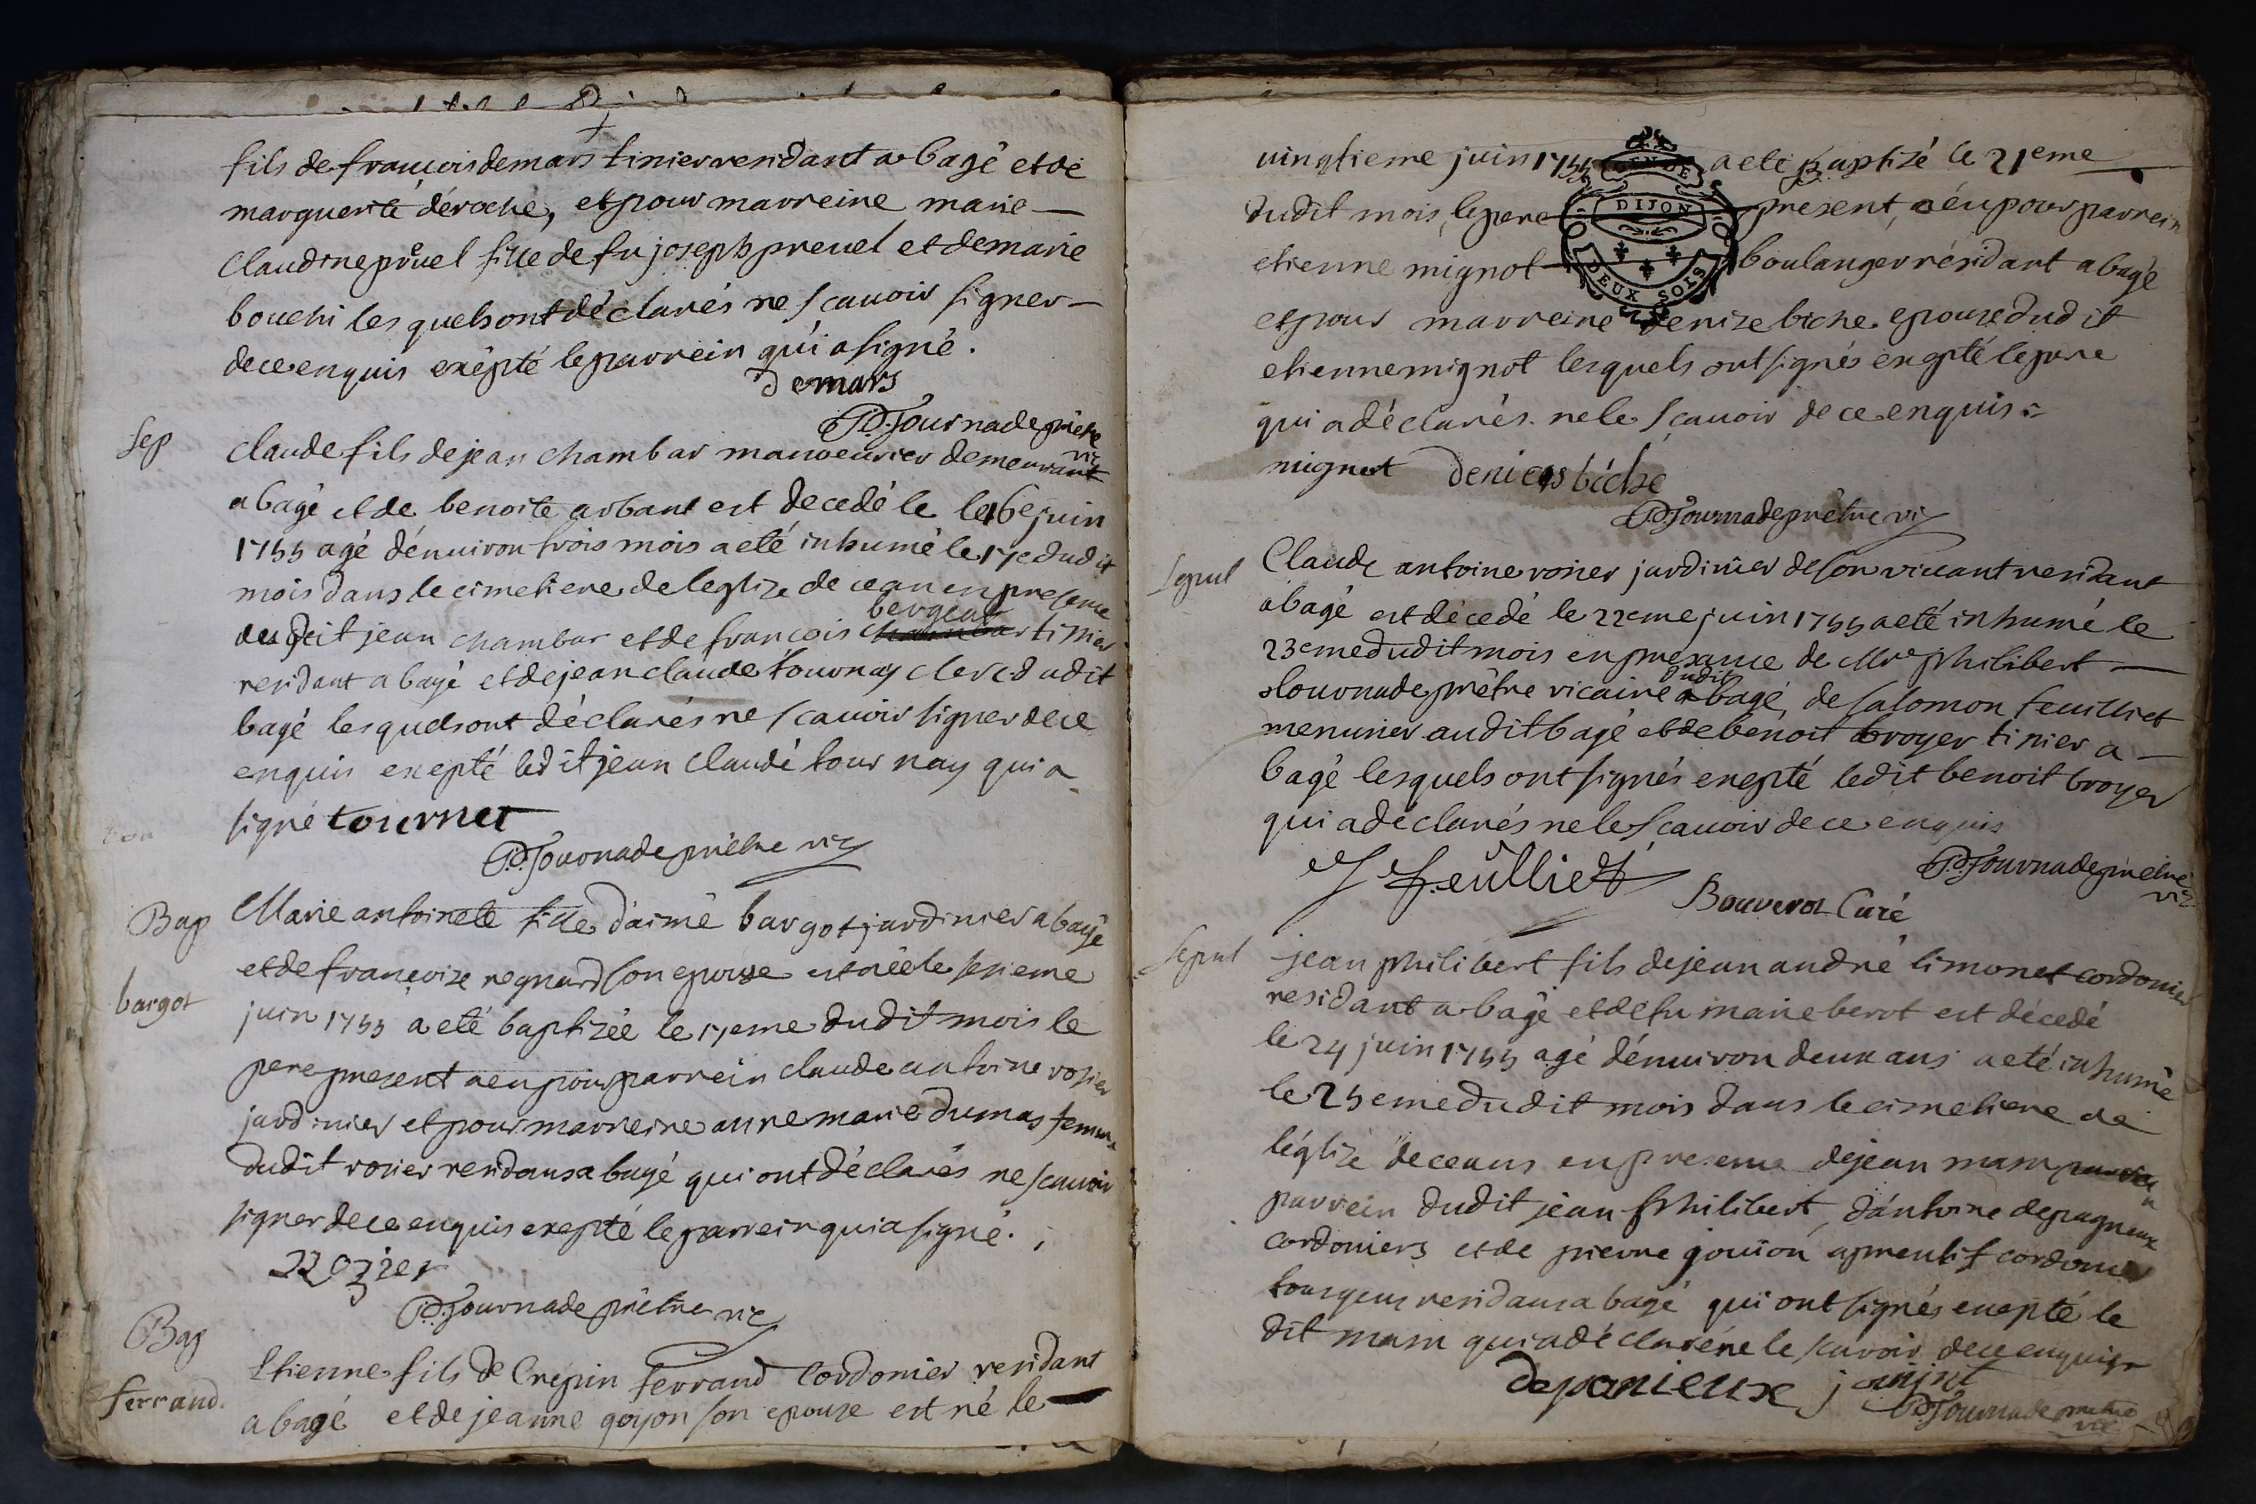 fils de françois demars tinier residant a bagé et de
marguerite déroche, et pour marreine marie
Claudine pruel fille de fu joseph preuel et de marie
bouchi les quels ont déclarés ne scauoir signer
de ce enquis exêpté le parrein qui a signé.
demars
PD. Tournade prêtre
vic
Sep
claude fils de jean chambar manoeurier demeurant
a bagé et de benoite arbant est decedé le le 16e juin
1755 agé dénuiron trois mois a eté inhumé le 17e dudit
mois dans le cimetiere de leglize de cean en presence
du dit jean chambar et de francois bergeat tinier
residant a bagé et de jean claude tournay clerc dudit
bagé lesquels ont déclarés ne scauoir signer de ce
enquis exepté ledit jean claude tournay qui a
signé tournet
PD. Tournade prêtre vic
Bap
bargot
Marie antoinete fille d'aimé bargot jardinier a bagé
et de françoize regnard son epouse est née le sezieme
juin 1755 a eté baptizée le 17eme dudit mois le
pere present a eu pour parrein claude antoine rosier
jardinier et pour marreine anne marie dumas femme
dudit rosier residans a bagé qui ont déclarés ne scauoir
signer de ce enquis exepté le parrein qui a signé.
Rozier
PD. Tournade prêtre vic
Bap
ferrand.
Etienne fils de Crépin ferrand Cordonier residant
a bagé et de jeanne goyon son epouze est né le
uingtieme juin 1755 a eté Baptizé le 21eme
DIJON
DEUX SOLS
dudit mois, le pere present, a éu pour parrein
etienne mignot boulanger résidant a bagé
et pour marreine denize biche epouze dudit
etienne mignot lesquels ont signés exepté le pere
qui a déclarés ne le scauoir de ce enquis
mignot biche
PD. Tournade prêtre vic
Sepul
Claude antoine rosier jardinier de son viuant residant
a bagé est décedé le 22eme juin 1755 a eté inhumé le
23eme dudit mois en presance de Mre philibert
tournade prêtre vicaire dudit bagé, de salomon feuilliet
menuiier audit bagé et de benoit broyer tinier a
bagé lesquels ont signés exepté ledit benoit broyer
qui a déclarés ne le scauoir de ce enquis
S feulliet
Bouverot Curé
PD. Tournade prêtre
vic
Sepul
jean philibert fils de jean andré limonet cordonier
residant a bagé et de fu marie berot est décedé
le 24 juin 1755 agé dénuiron deux ans a eté inhumé
le 25eme dudit mois dans le cimetiere de
léglize de ceans en presence de jean
parrein dudit jean philibert, d'antoine depagneux
cordoniers et de pierre goüion aprentif cordonier
tous gens residans a bagé qui ont signés exepté le
dit qui a déclaré ne le scavoir de ce enquis
depanieux
PD. Tournade prêtre
vic